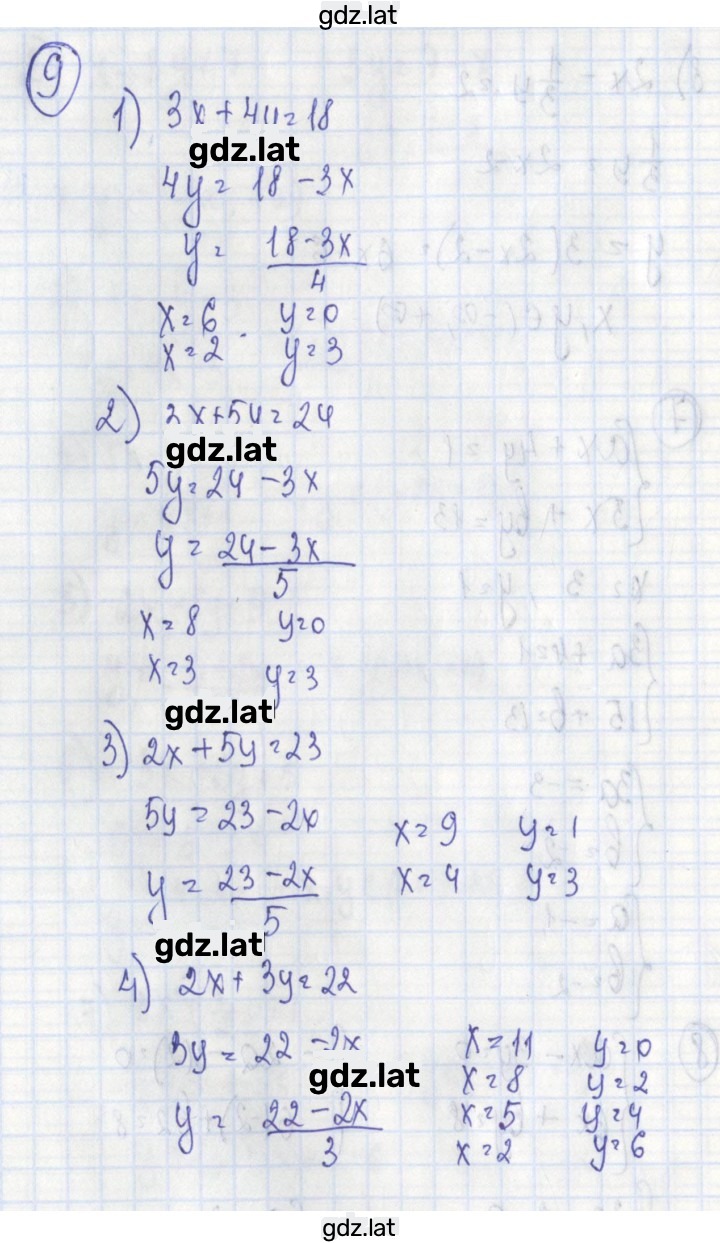 gdz.lat
9
1) 3x + 4y = 18
gdz.lat
4y = 18 - 3x
y = 18-3x / 4
x = 6 y = 0
x = 2 y = 3
2) 2x + 5y = 24
gdz.lat
5y = 24 - 3x
y = 24 - 3x / 5
x = 8 y = 0
x = 3 y = 3
gdz.lat
3) 2x + 5y = 23
5y = 23 - 2x
x = 9 y = 1
y = 23 - 2x / 5
x = 4 y = 3
gdz.lat
4) 2x + 3y = 22
3y = 22 - 2x
x = 11 y = 0
gdz.lat
x = 8 y = 2
y = 22 - 2x / 3
x = 5 y = 4
x = 2 y = 6
gdz.lat